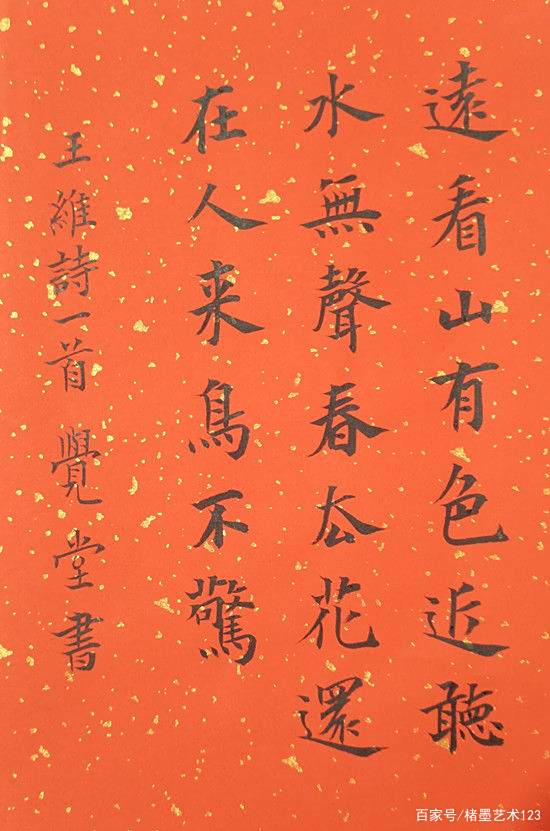 遠看山有色近聽
水無聲春去花還
在人来鳥不驚
王維詩一首覺堂書
百家号/楮墨艺术123